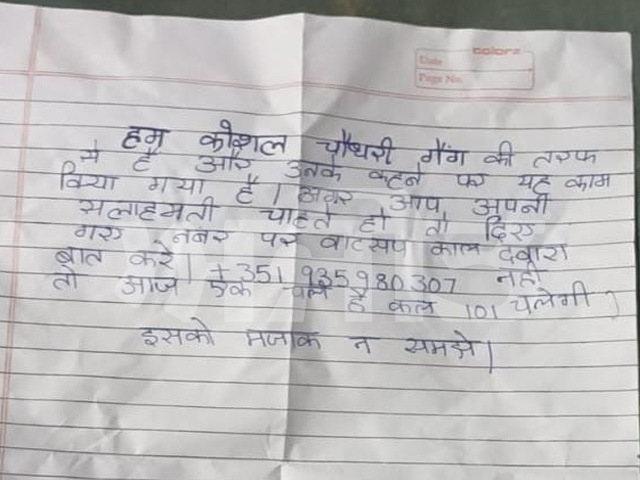 colorz
Date
Page No.
हम कौशल चौधरी गैंग की तरफ
से है और उनके कहने पर यह काम
किया गया है। अगर आप अपनी
सलाहमती चाहते हो तो दिए
गए नंबर पर वाटसप काल दवारा
बात करे। +351 935980307 नही
तो आज एक चली है कल 101 चलेगी।
इसको मजाक न समझे।